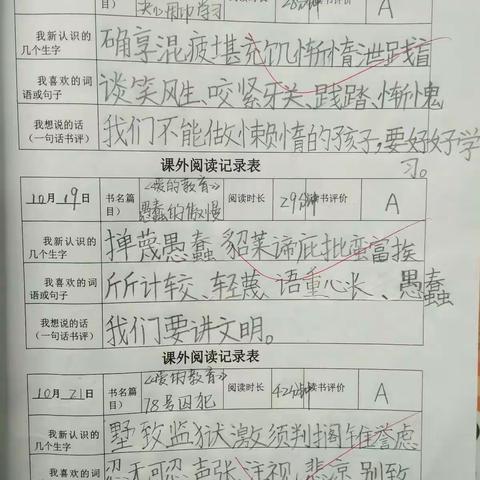 阅读时长 28分钟 读书评价 A
我新认识的几个生字 确享混疲堪充饥惭惰泄践盲
我喜欢的词语或句子 谈笑风生、咬紧牙关、践踏、惭愧
我想说的话(一句话书评) 我们不能做懒惰的孩子,要好好学习。
课外阅读记录表
10月19日 书名篇目) 《爱的教育》愚蠢的傲慢 阅读时长 29分钟 读书评价 A
我新认识的几个生字 掸蔑愚蠢貂莱谛庇批蛮富挨
我喜欢的词语或句子 斤斤计较、轻蔑、语重心长、愚蠢
我想说的话(一句话书评) 我们要讲文明。
课外阅读记录表
10月21日 书名篇目) 《爱的教育》78号囚犯 阅读时长 42分钟 读书评价 A
我新认识的几个生字 墅致监狱激须判搁锥誉虑
我喜欢的词 忍无可忍、声张、注视、悲凉、别致